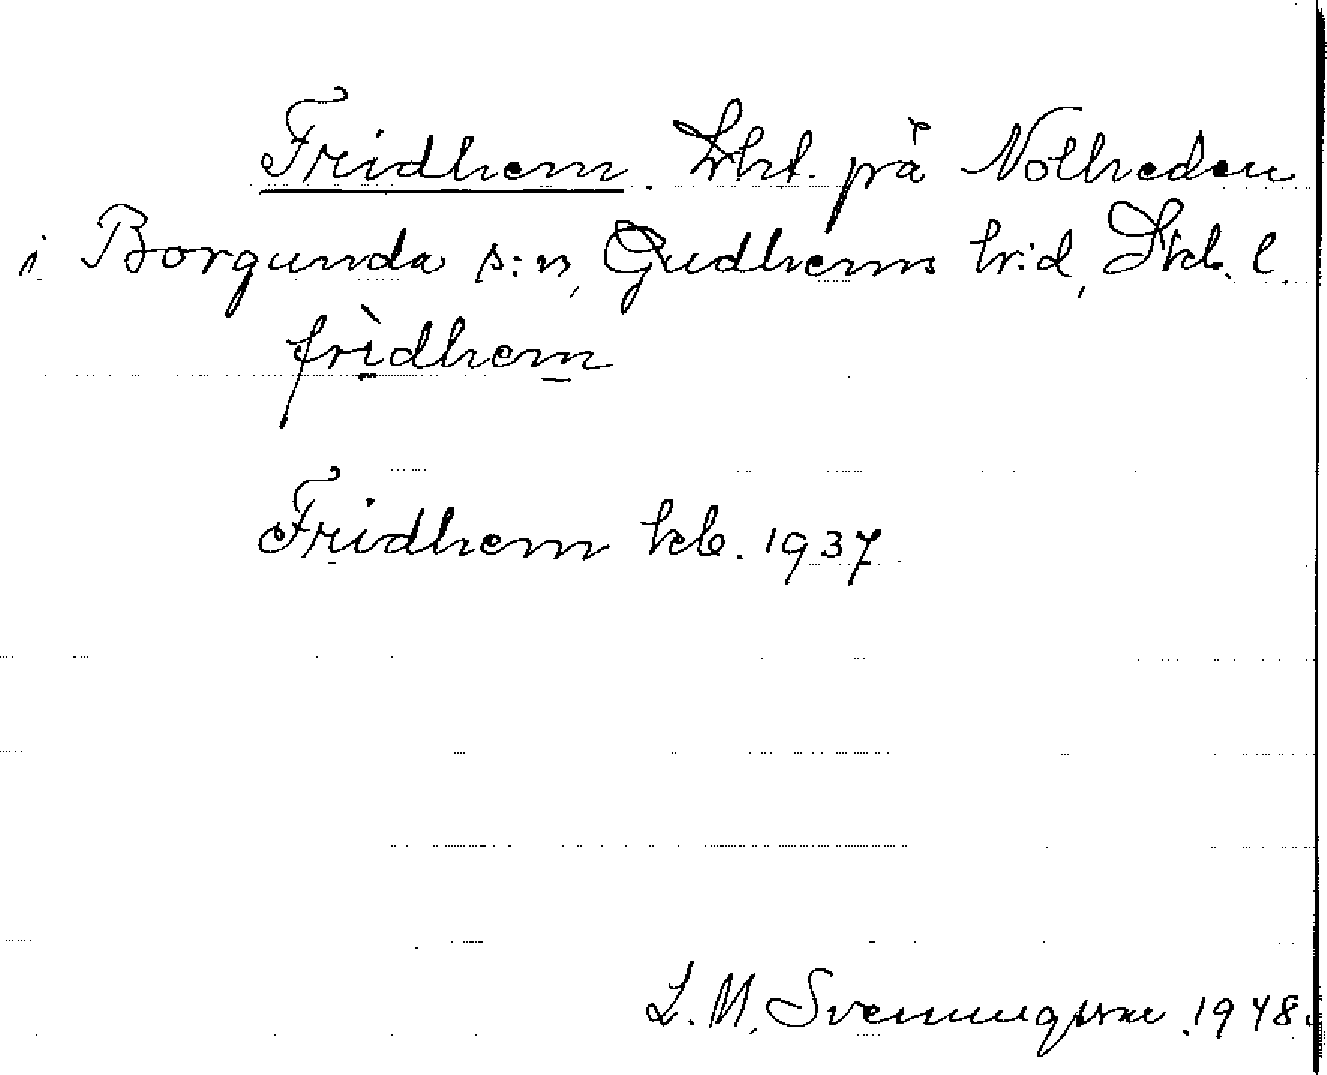 Fridhem. Lht. på Nolheden
i Borgunda s:n, Gudhems hd, Skb. l.
frìdhem
Fridhem kb. 1937
L. M. Svenungsson 1948.